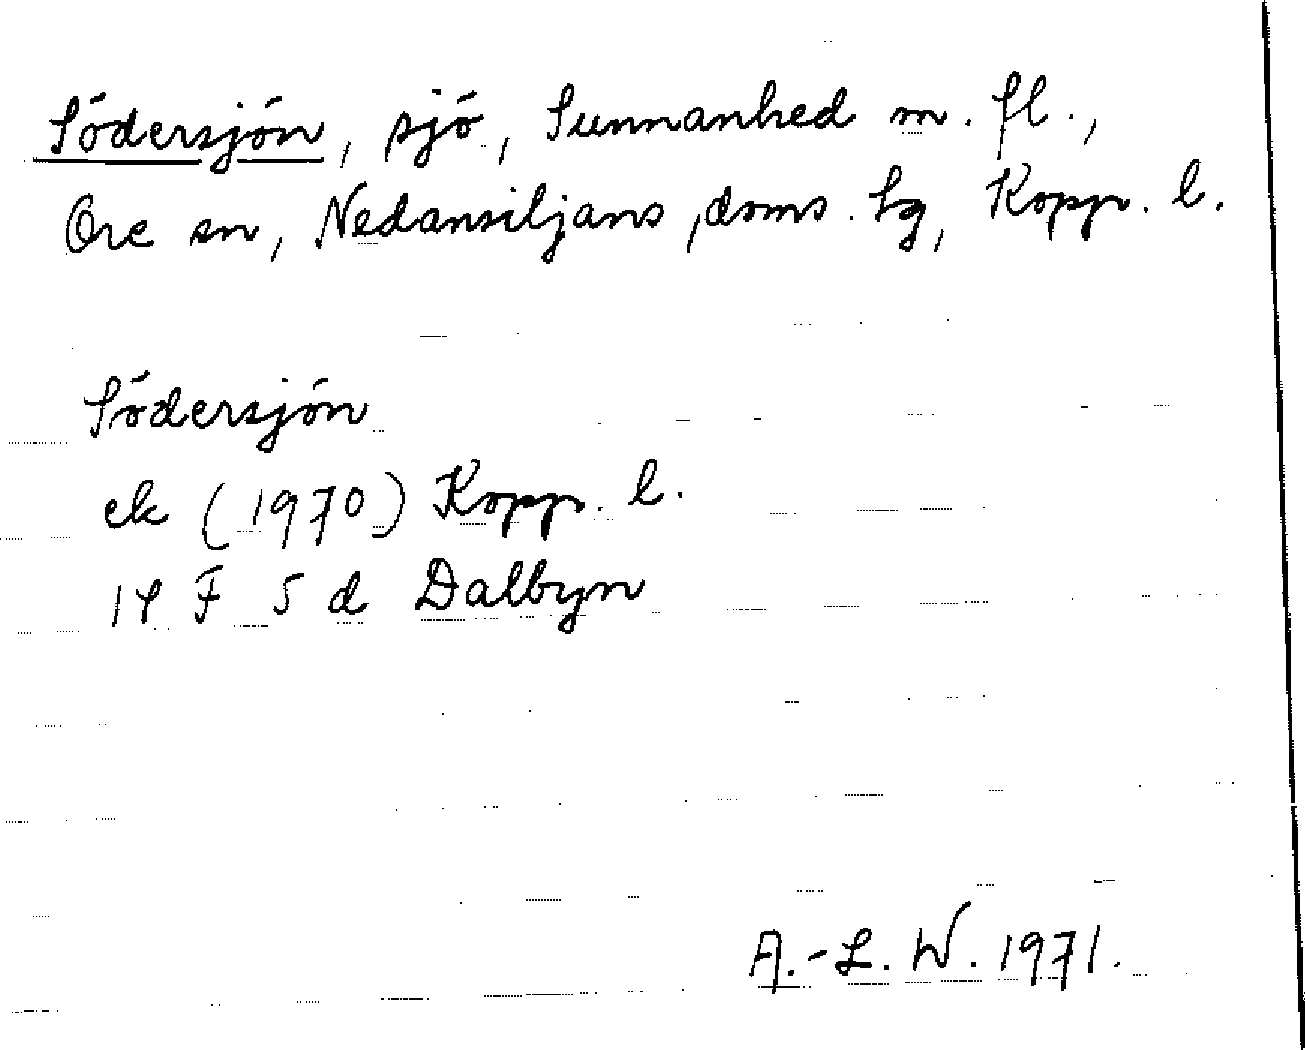 Södersjön, sjö, Sunnanhed m. fl.,
Ore sn, Nedansiljans doms. tg, Kopp. l.
Södersjön
ek (1970) Kopp. l.
14 F 5 d Dalbyn
A.-L. W. 1971.